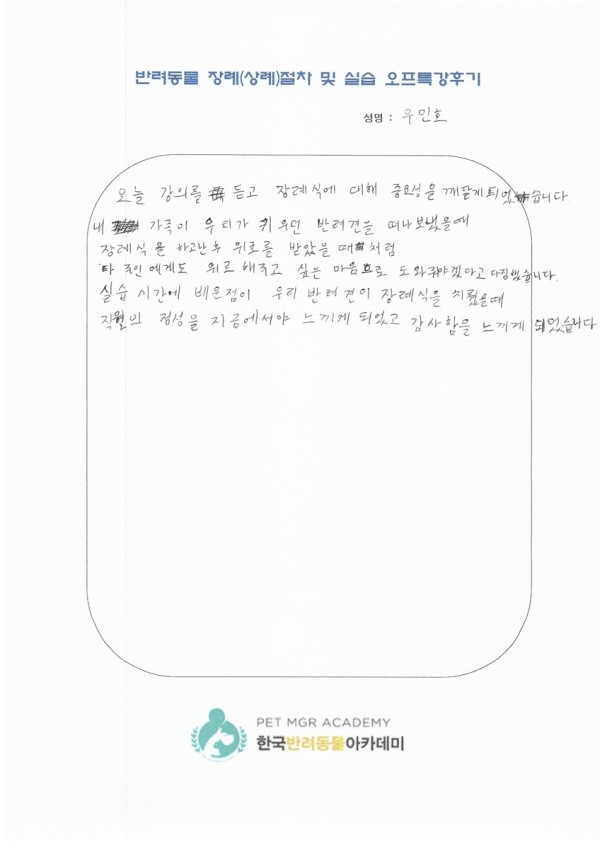 반려동물 장례(상례)절차 및 실습 오프특강후기
성명 : 우민호
오늘 강의를 듣고 장례식에 대해 중요성을 깨닫게 되었습니다.
내 가족이 우리가 키우던 반려견을 떠나보냈을때
장례식을 하고난 후 위로를 받았을 때처럼
타 주인에게도 위로해주고 싶은 마음으로 도와줘야겠다고 다짐했습니다.
실습 시간에 배운점이 우리 반려견이 장례식을 치뤘을때
직원의 정성을 지금에서야 느끼게 되었고 감사함을 느끼게 되었습니다
PET MGR ACADEMY
한국반려동물아카데미